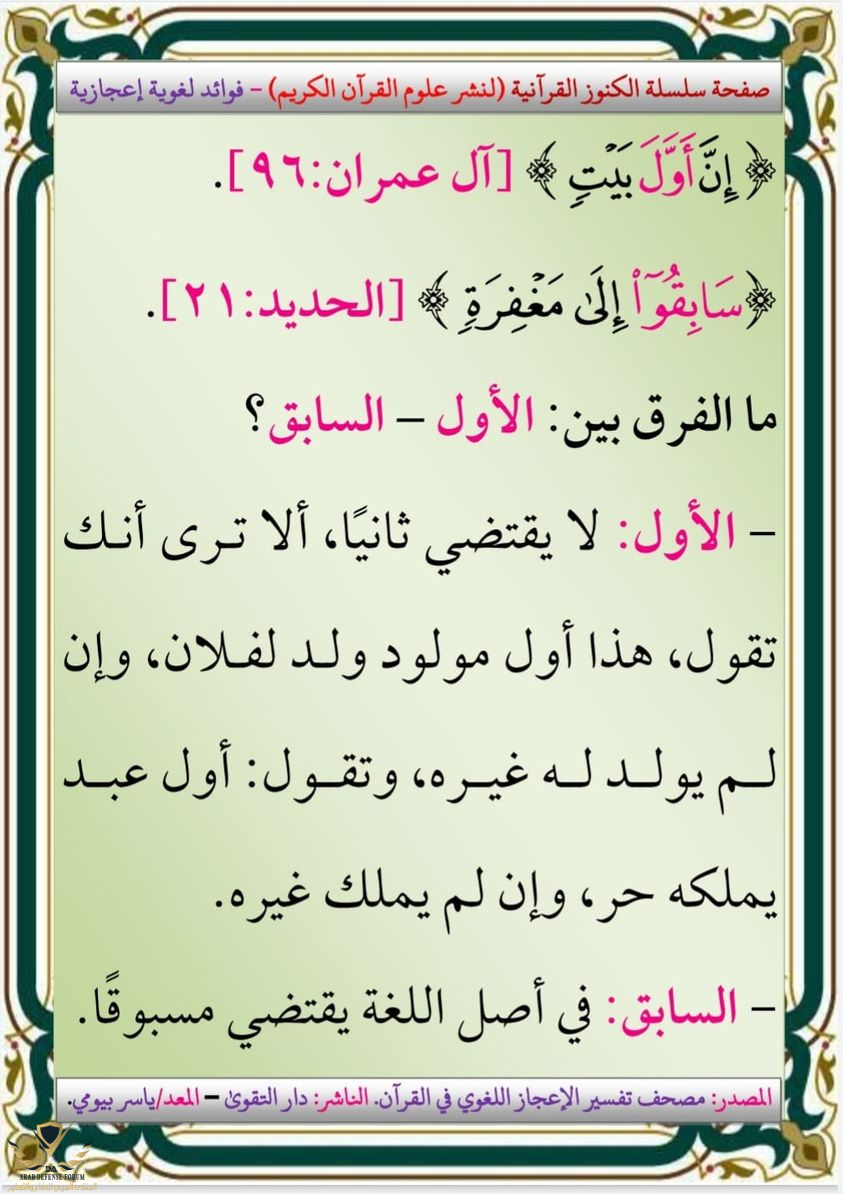 صفحة سلسلة الكنوز القرآنية (لنشر علوم القرآن الكريم) – فوائد لغوية إعجازية
﴿ إِنَّ أَوَّلَ بَيۡتٖ ﴾ [آل عمران:٩٦].
﴿سَابِقُوٓاْ إِلَىٰ مَغۡفِرَةٖ ﴾ [الحديد:٢١].
ما الفرق بين: الأول – السابق؟
– الأول: لا يقتضي ثانيًا، ألا ترى أنك
تقول، هذا أول مولود ولد لفلان، وإن
لم يولد له غيره، وتقول: أول عبد
يملكه حر، وإن لم يملك غيره.
– السابق: في أصل اللغة يقتضي مسبوقًا.
المصدر: مصحف تفسير الإعجاز اللغوي في القرآن. الناشر: دار التقوىٰ – المعد/ياسر بيومي.
DA
ARAB DEFENSE FORUM